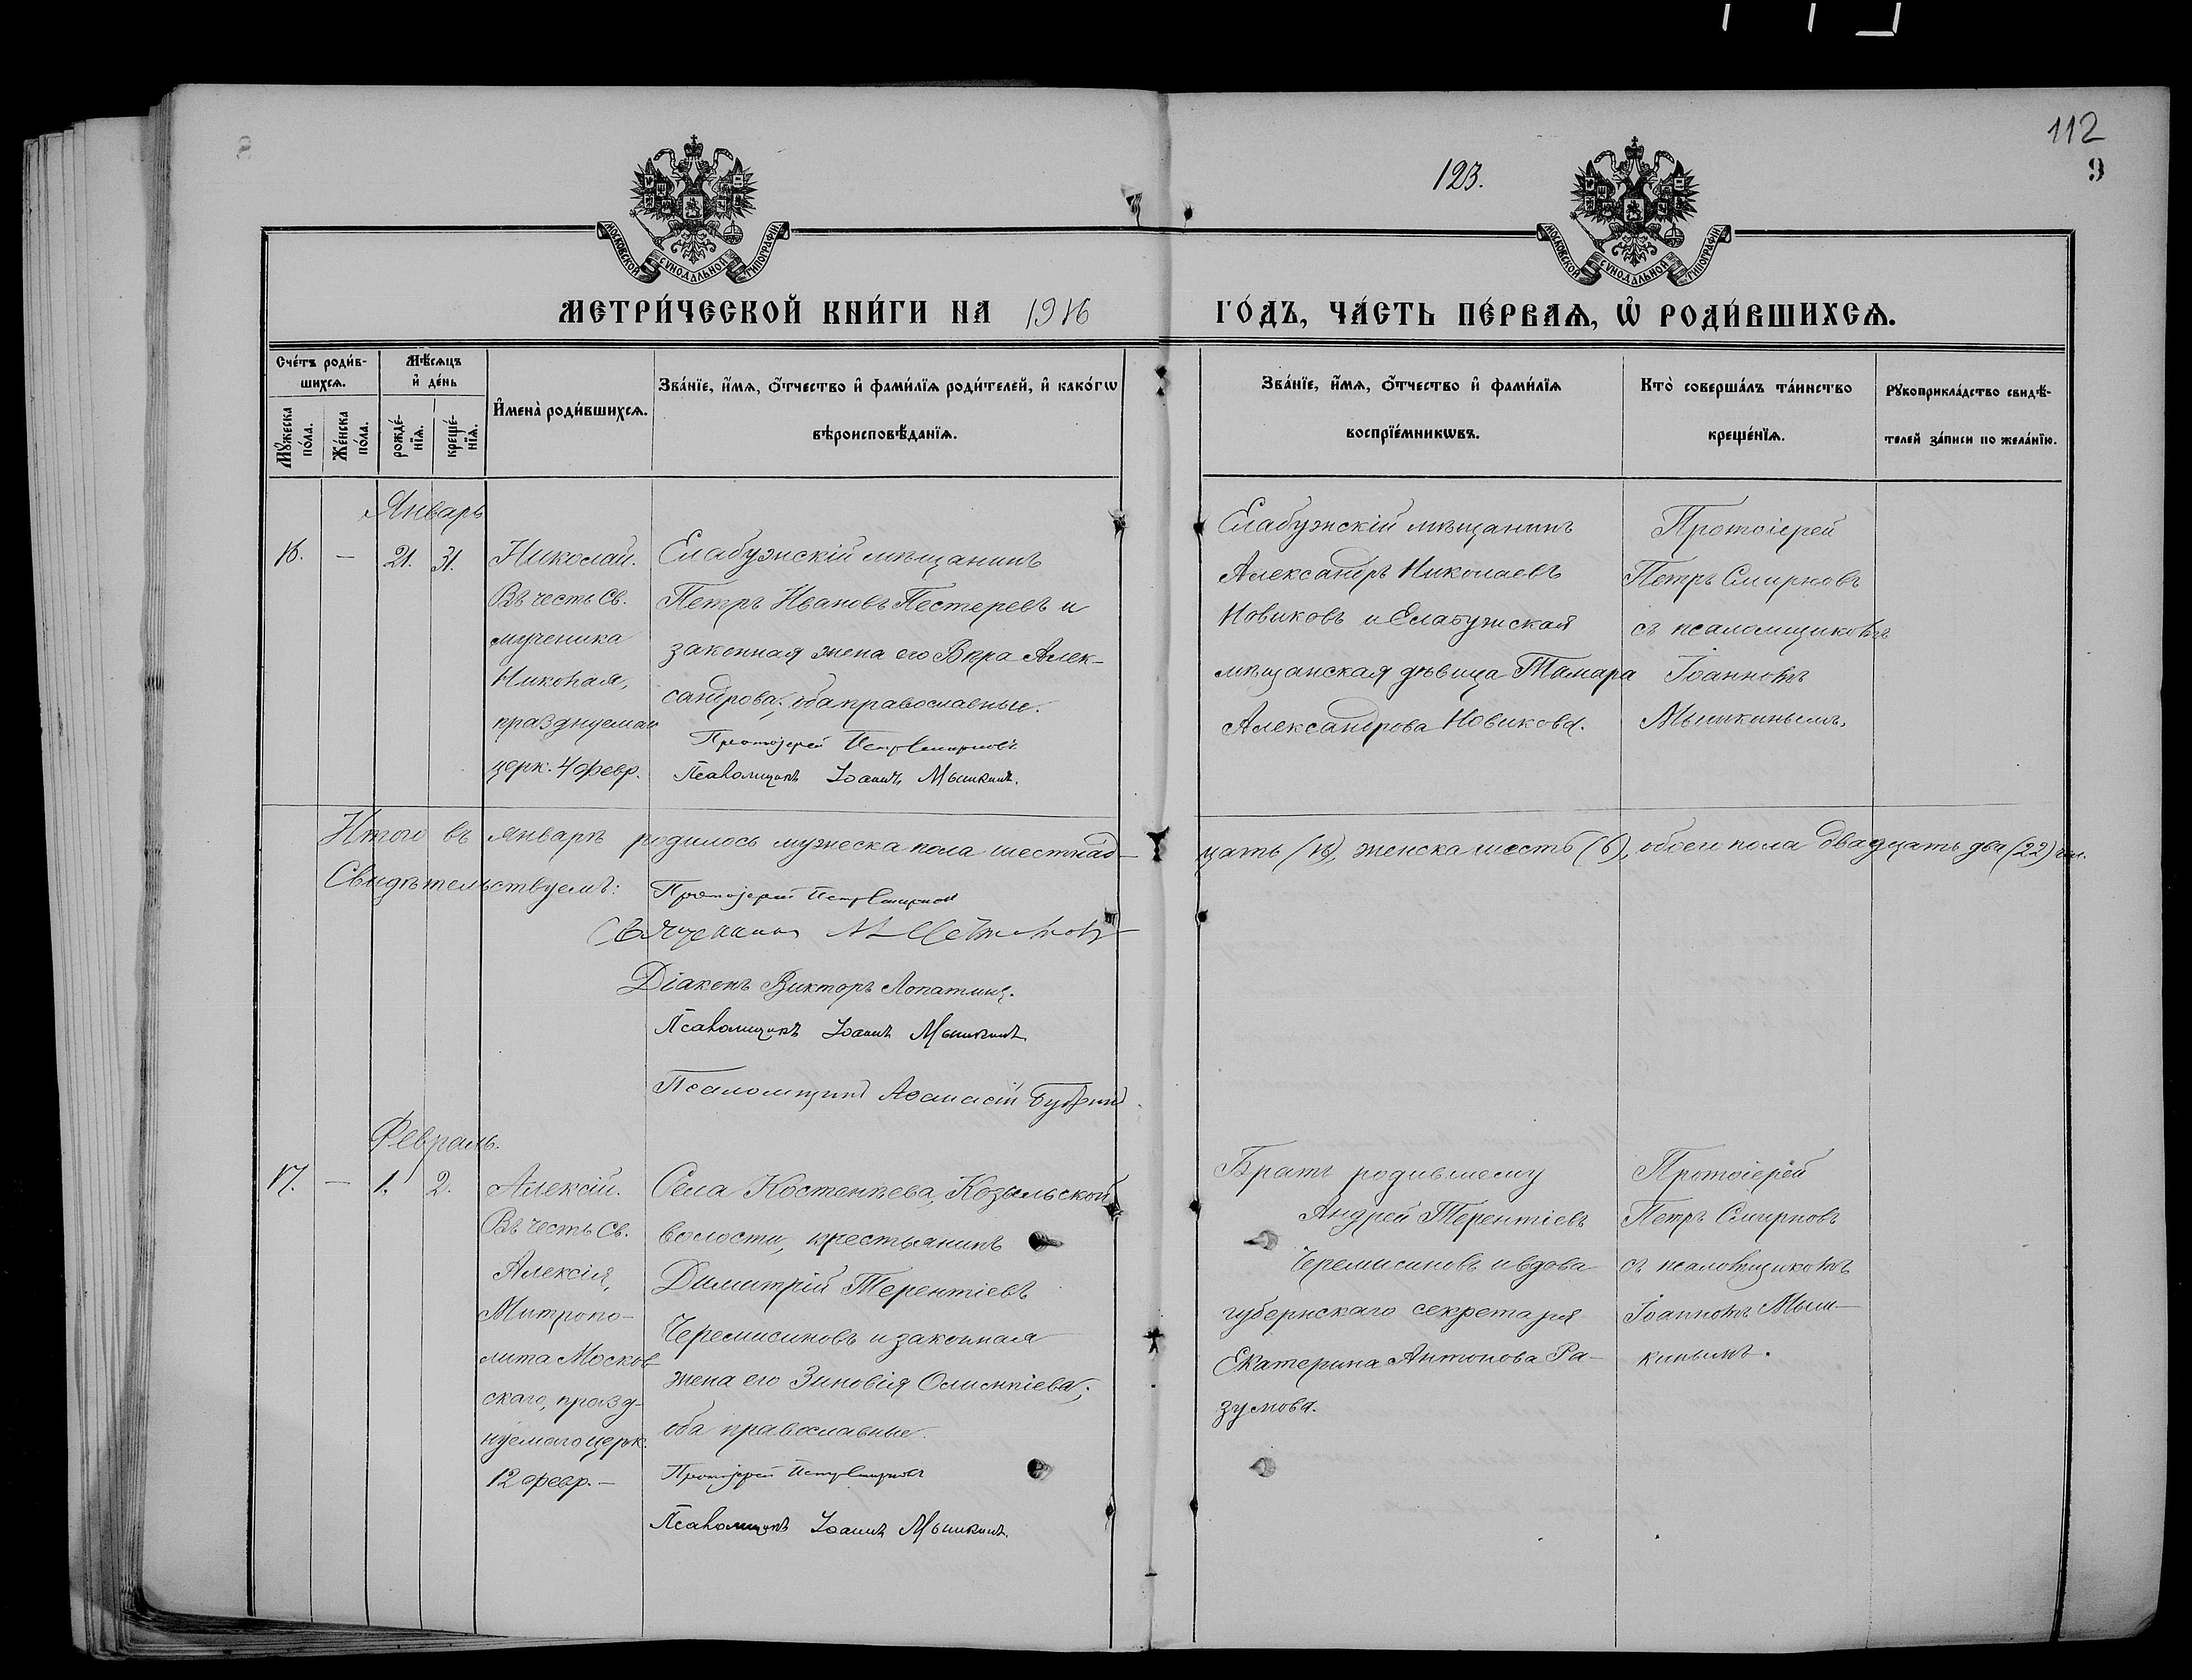 112
9
123.
МОСКОВСКОЙ СУНОДАЛЬНОЙ ТИПОГРАФІИ
МОСКОВСКОЙ СУНОДАЛЬНОЙ ТИПОГРАФІИ
МЕТРИ́ЧЕСКОЙ КНИ́ГИ НА 1916 ГО́ДЪ, ЧА́СТЬ ПЕ́РВАѦ, Ѡ҆ РОДИ́ВШИХСѦ.
Сче́тъ роди́в-
шихсѧ.
Мꙋ́жеска
по́ла.
Же́нска
по́ла.
Мѣ́сѧцъ
и҆ де́нь
рожде́-
нїѧ.
креще́-
нїѧ.
И҆мена̀ роди́вшихсѧ.
Зва́нїе, и҆́мѧ, ѻ҆́тчество и҆ фами́лїѧ роди́телей, и҆ како́гѡ
вѣроисповѣ́данїѧ.
Зва́нїе, и҆́мѧ, ѻ҆́тчество и҆ фами́лїѧ
воспрїе́мникѡвъ.
Кто̀ соверша́лъ та́инство
креще́нїѧ.
Рꙋкоприкла́дство свидѣ́-
телей за́писи по жела́нїю.
Январь
16. — 21. 31.
Николай.
Въ честь Св.
мученика
Николая,
празднуемаго
церк. 4 февр.
Елабужскій мѣщанинъ
Петръ Ивановъ Пестеревъ и
законная жена его Вѣра Алек-
сандрова; оба православные.
Протоіерей Петръ Смирновъ
Псаломщикъ Іоаннъ Мышкинъ.
Елабужскій мѣщанинъ
Александръ Николаевъ
Новиковъ и Елабужская
мѣщанская дѣвица Тамара
Александрова Новикова.
Протоіерей
Петръ Смирновъ
съ псаломщикомъ
Іоанномъ
Мышкинымъ.
Итого въ январѣ родилось мужеска пола шестнад-
цать (16), женска шесть (6), обоего пола двадцать два (22) чел.
Свидѣтельствуемъ:
Протоіерей Петръ Смирновъ
Священникъ
Діаконъ Викторъ Лопатинъ.
Псаломщикъ Іоаннъ Мышкинъ.
Псаломщикъ Аѳанасій
Февраль.
17. — 1. 2.
Алексій.
Въ честь Св.
Алексія,
Митропо-
лита Москов-
скаго, празд-
нуемаго церк.
12 февр. —
Села Костенѣева, Козыльской
волости, крестьянинъ
Димитрій Терентіевъ
Черемисиновъ и законная
жена его Зиновія Олимпіева;
оба православные.
Протоіерей Петръ Смирновъ
Псаломщикъ Іоаннъ Мышкинъ.
Братъ родившему
Андрей Терентіевъ
Черемисиновъ и вдова
губернскаго секретаря
Екатерина Антонова Ра-
зумова.
Протоіерей
Петръ Смирновъ
съ псаломщикомъ
Іоанномъ Мыш-
кинымъ.